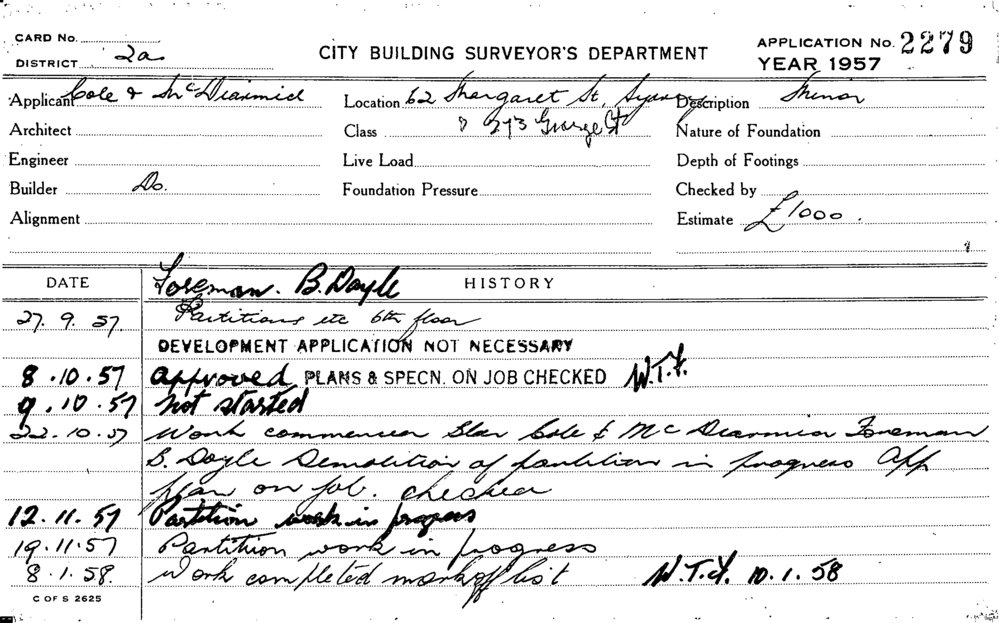 CARD No.
DISTRICT 2a
CITY BUILDING SURVEYOR'S DEPARTMENT
APPLICATION No. 2279
YEAR 1957
Applicant Cole & McDiarmid
Location 62 Margaret St, Sydney
Description Minor
Architect
Class & 273 George St
Nature of Foundation
Engineer
Live Load
Depth of Footings
Builder Do.
Foundation Pressure
Checked by
Alignment
Estimate £1000.
DATE
Foreman. B. Doyle
HISTORY
27. 9. 57 Partitions etc 6th floor
DEVELOPMENT APPLICATION NOT NECESSARY
8.10.57 approved PLANS & SPECN. ON JOB CHECKED
9.10.57 not started
22.10.57 Work commenced Cole & McDiarmid Foreman
B. Doyle Demolition of partition in progress App
plan on job. checked
12.11.57 Partition work in progress
19.11.57 Partition work in progress
8.1.58. Work completed mark off list 10.1.58
C OF S 2625